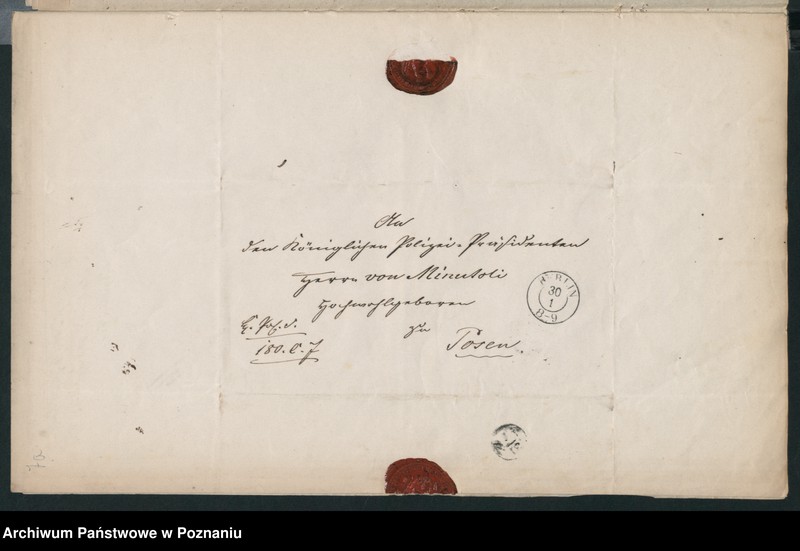 An
den Königlichen Polizei-Präsidenten
Herrn von Minutoli
Hochwohlgeboren
zu
Posen.
180.
BERLIN
30
1
8-9
Archiwum Państwowe w Poznaniu